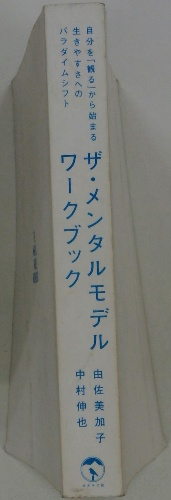 自分を「観る」から始まる
生きやすさへの
パラダイムシフト
ザ・メンタルモデル
ワークブック
由佐美加子
中村伸也